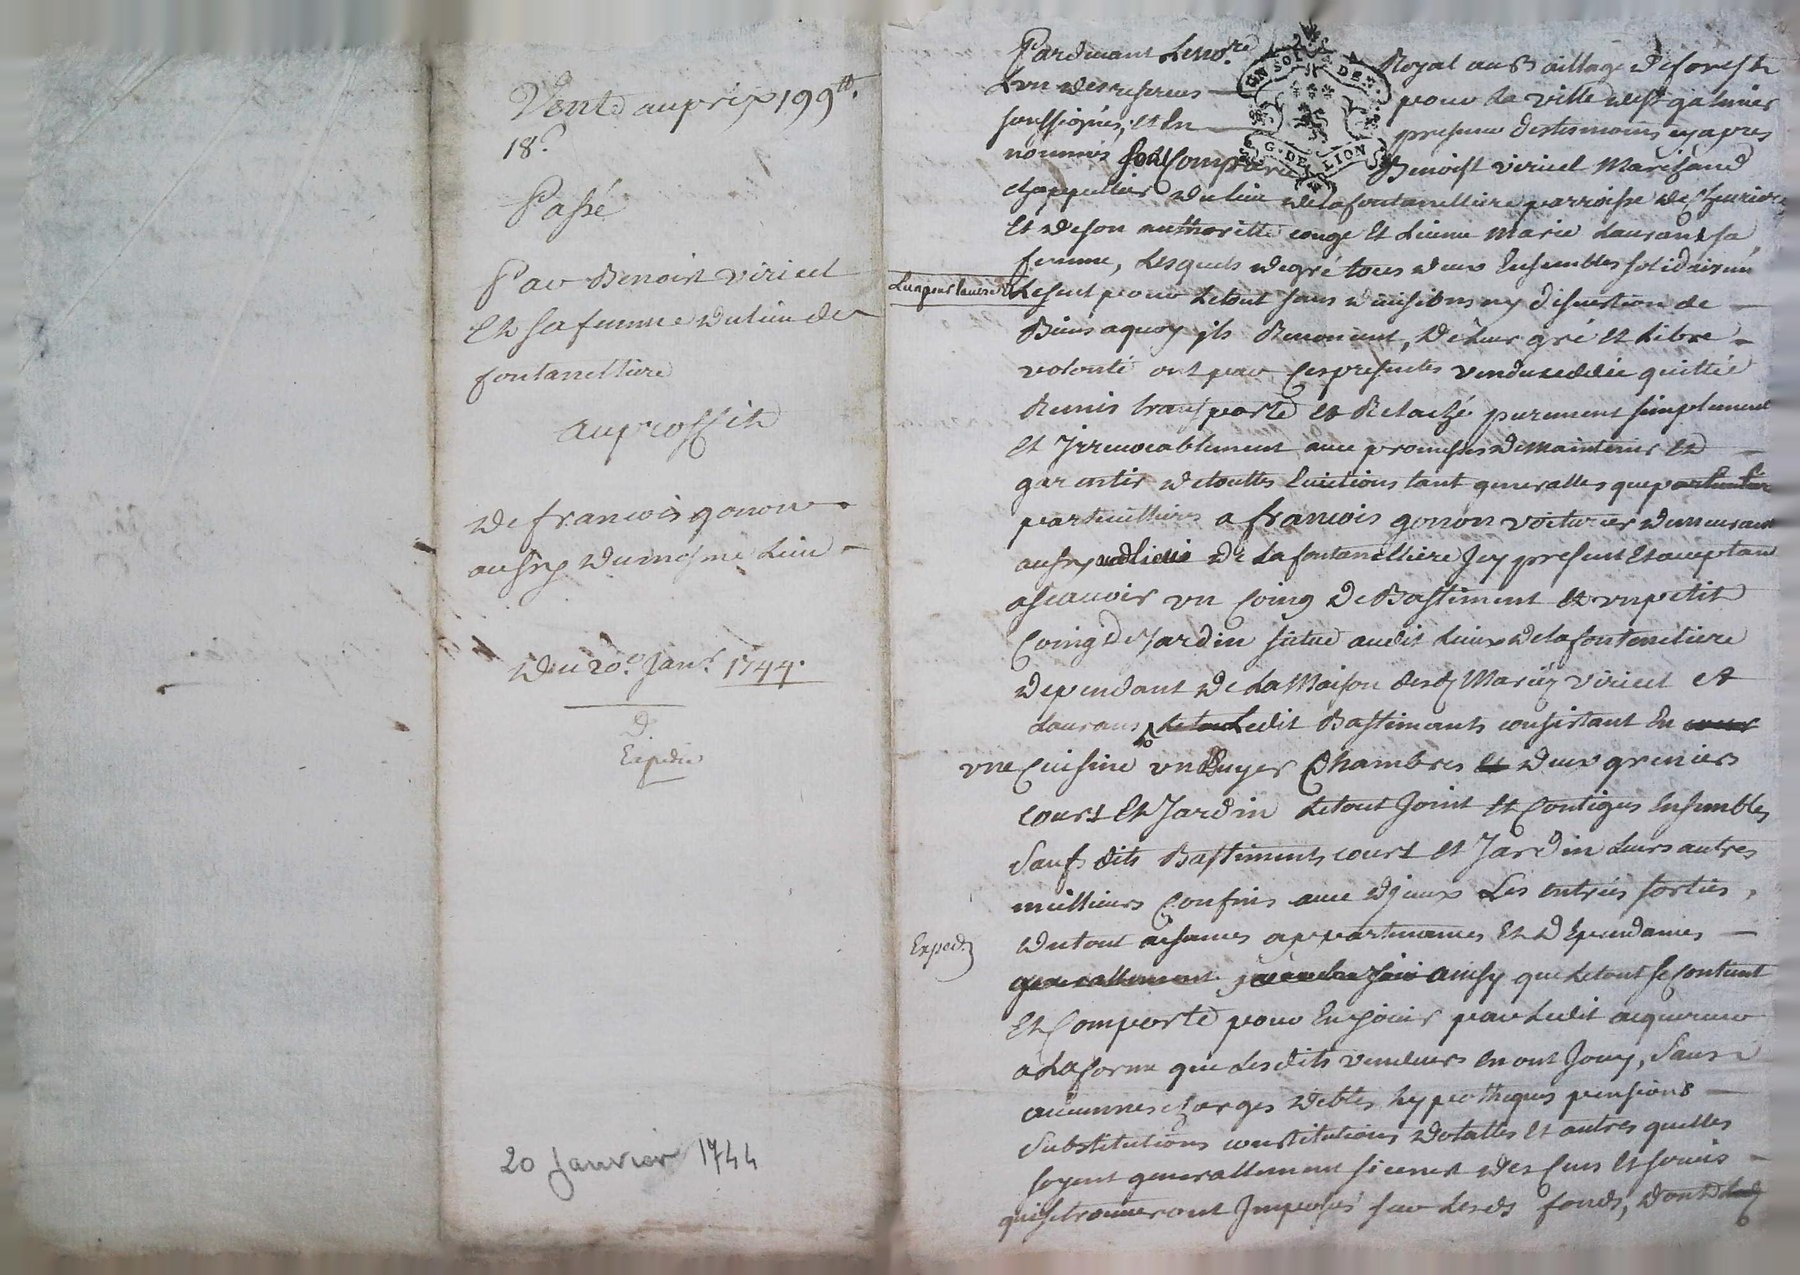 Vente au prix 199tt.
18s
Passé
Par Benoist viricel
Et sa femme du lieu de
fontanelliere
au proffit
De francois gonon
aussy du mesme lieu
Du 20e. Janr. 1744.
Expedié
20 Janvier 1744
Pardevant le nore. Royal au Baillage de forest
pour la ville de st galmier
soussigné, et en presence des tesmoins cy apres
nommés Benoist viricel Marchand
chappellier du lieu de la fontanelliere parroisse de
Et de son authorité congé Et licence Marie Laurans sa
femme, Lesquels de gré tous deux Ensembles solidairemt
Lun pour lautre Le seul pour le tout sans division ny discution de
Biens a quoy ils Renoncent, De leur gré et libre
volonté ont par ces presentes vendu ceddé quitté
Remis transporté et Relaché purement simplement
et Irrevocablement avec promesses de maintenir Et
garentir de touttes Evictions tant generalles que
particullieres a francois gonon voiturier demeurant
aussy de La fontanelliere Icy present Et acceptant
ascavoir un Coing De Bastiment et un petit
Coing De Jardin situé audit Lieu de la fontanetiere
dependant de La Maison desdt Mariéz viricel et
Laurans ledit Bastiments consistant En
une Cuisine un Chambres deux greniers
court Et Jardin le tout Joint et Contigus Ensembles
Sauf dits Bastiments court et Jardin Leurs autres
meillieurs Confins avec Les entrées sorties,
Exped
du tout aisances appartenances Et Dependances
ainsy que le tout se contient
Et Comporte pour En Jouir par ledit acquereur
a la forme que Lesdits vendeurs en ont Jouy, Sans
aucunnes charges debtes hypotheques pensions
Substitutions constitutions dotalles et autres quelles
soyent generallement si ce n'est des Cens Et servis
qui se trouveront Imposés sur lesds fonds, dont
G. DE LION